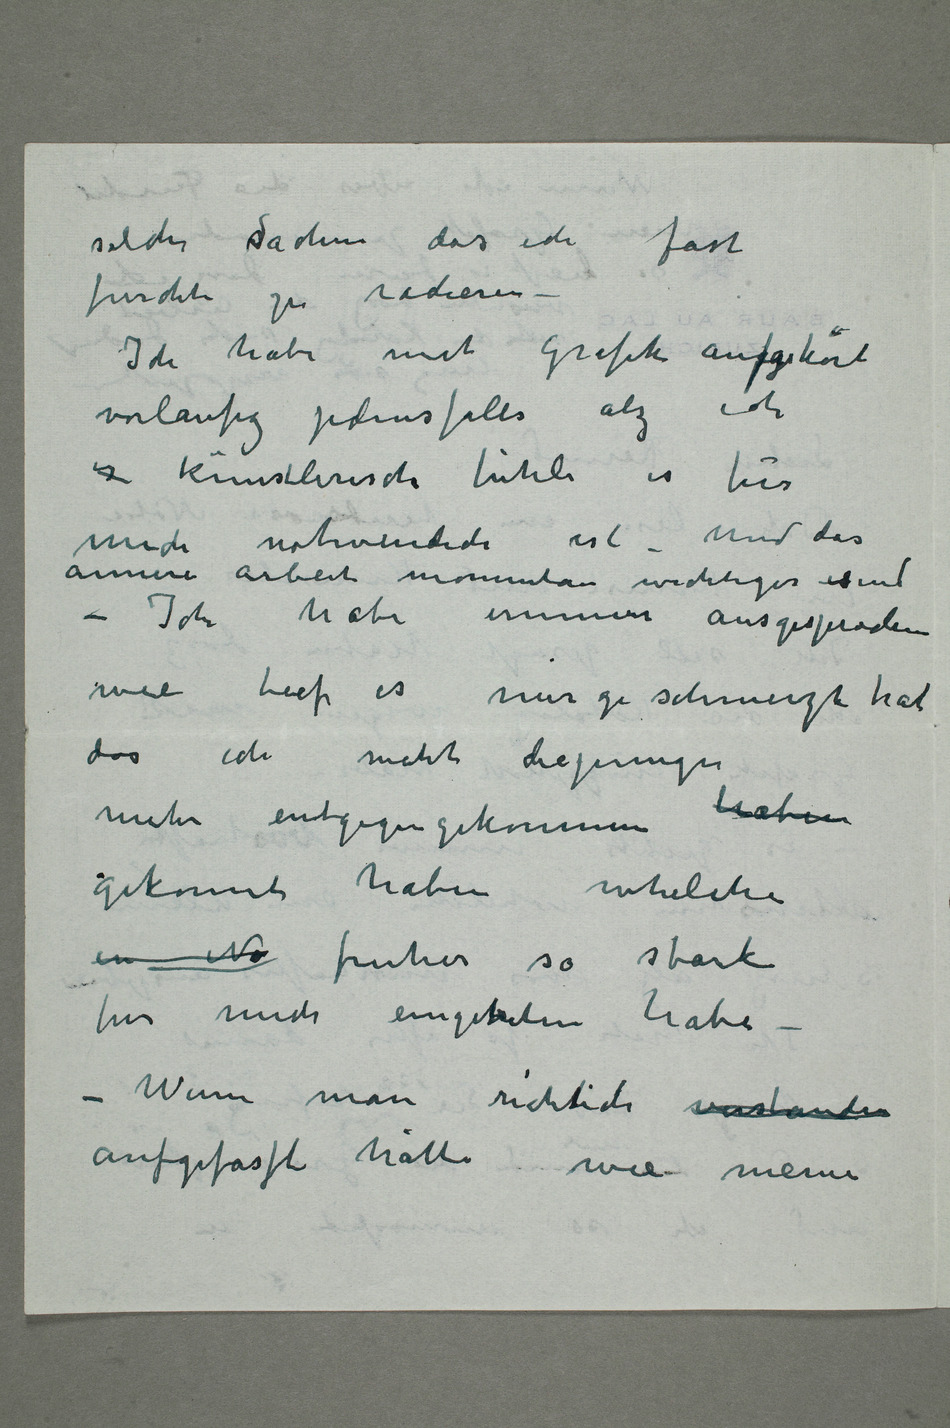 solche Sachen das ich fast
furchte zu radieren –
Ich habe mit Grafik aufgehört
vorlaufig jedensfalls alz ich
künstlerisch fühle es für
mich notwendich ist – und das
annere arbeit momentan wichtiger sind
– Ich habe immer ausgesprochen
wie tief es mir geschmerzt hat
das ich nicht diejenigen
mehr entgegengekommen haben
gekonnt haben whelche
en No früher so stark
für mich eingetreten habe –
– Wenn man richtich verstanden
aufgefasst hätte wie meine